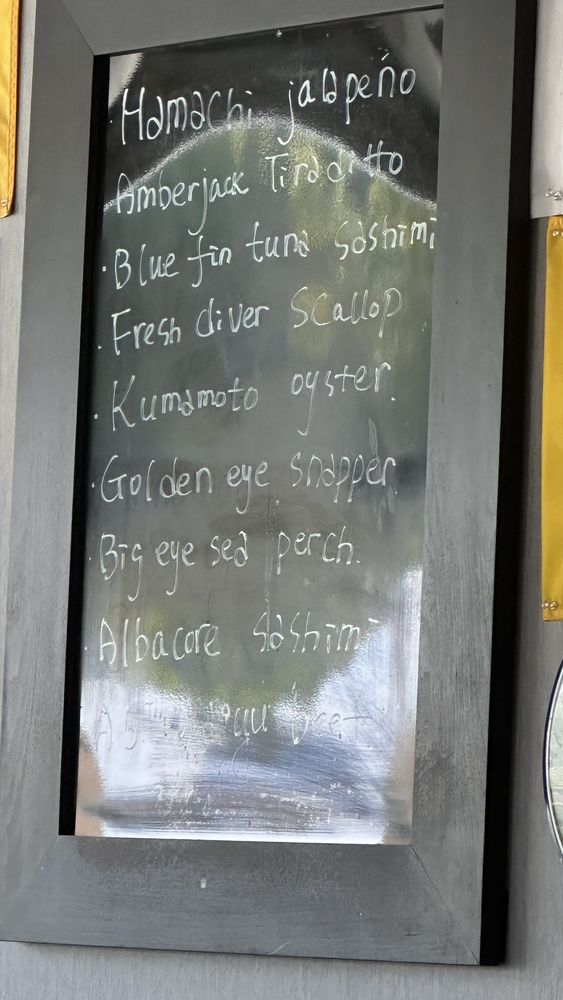 · Hamachi jalapeño
· Amberjack Tiraditto
· Blue fin tuna sashimi
· Fresh diver Scallop
· Kumamoto oyster.
· Golden eye snapper.
· Big eye sea perch.
· Albacore sashimi